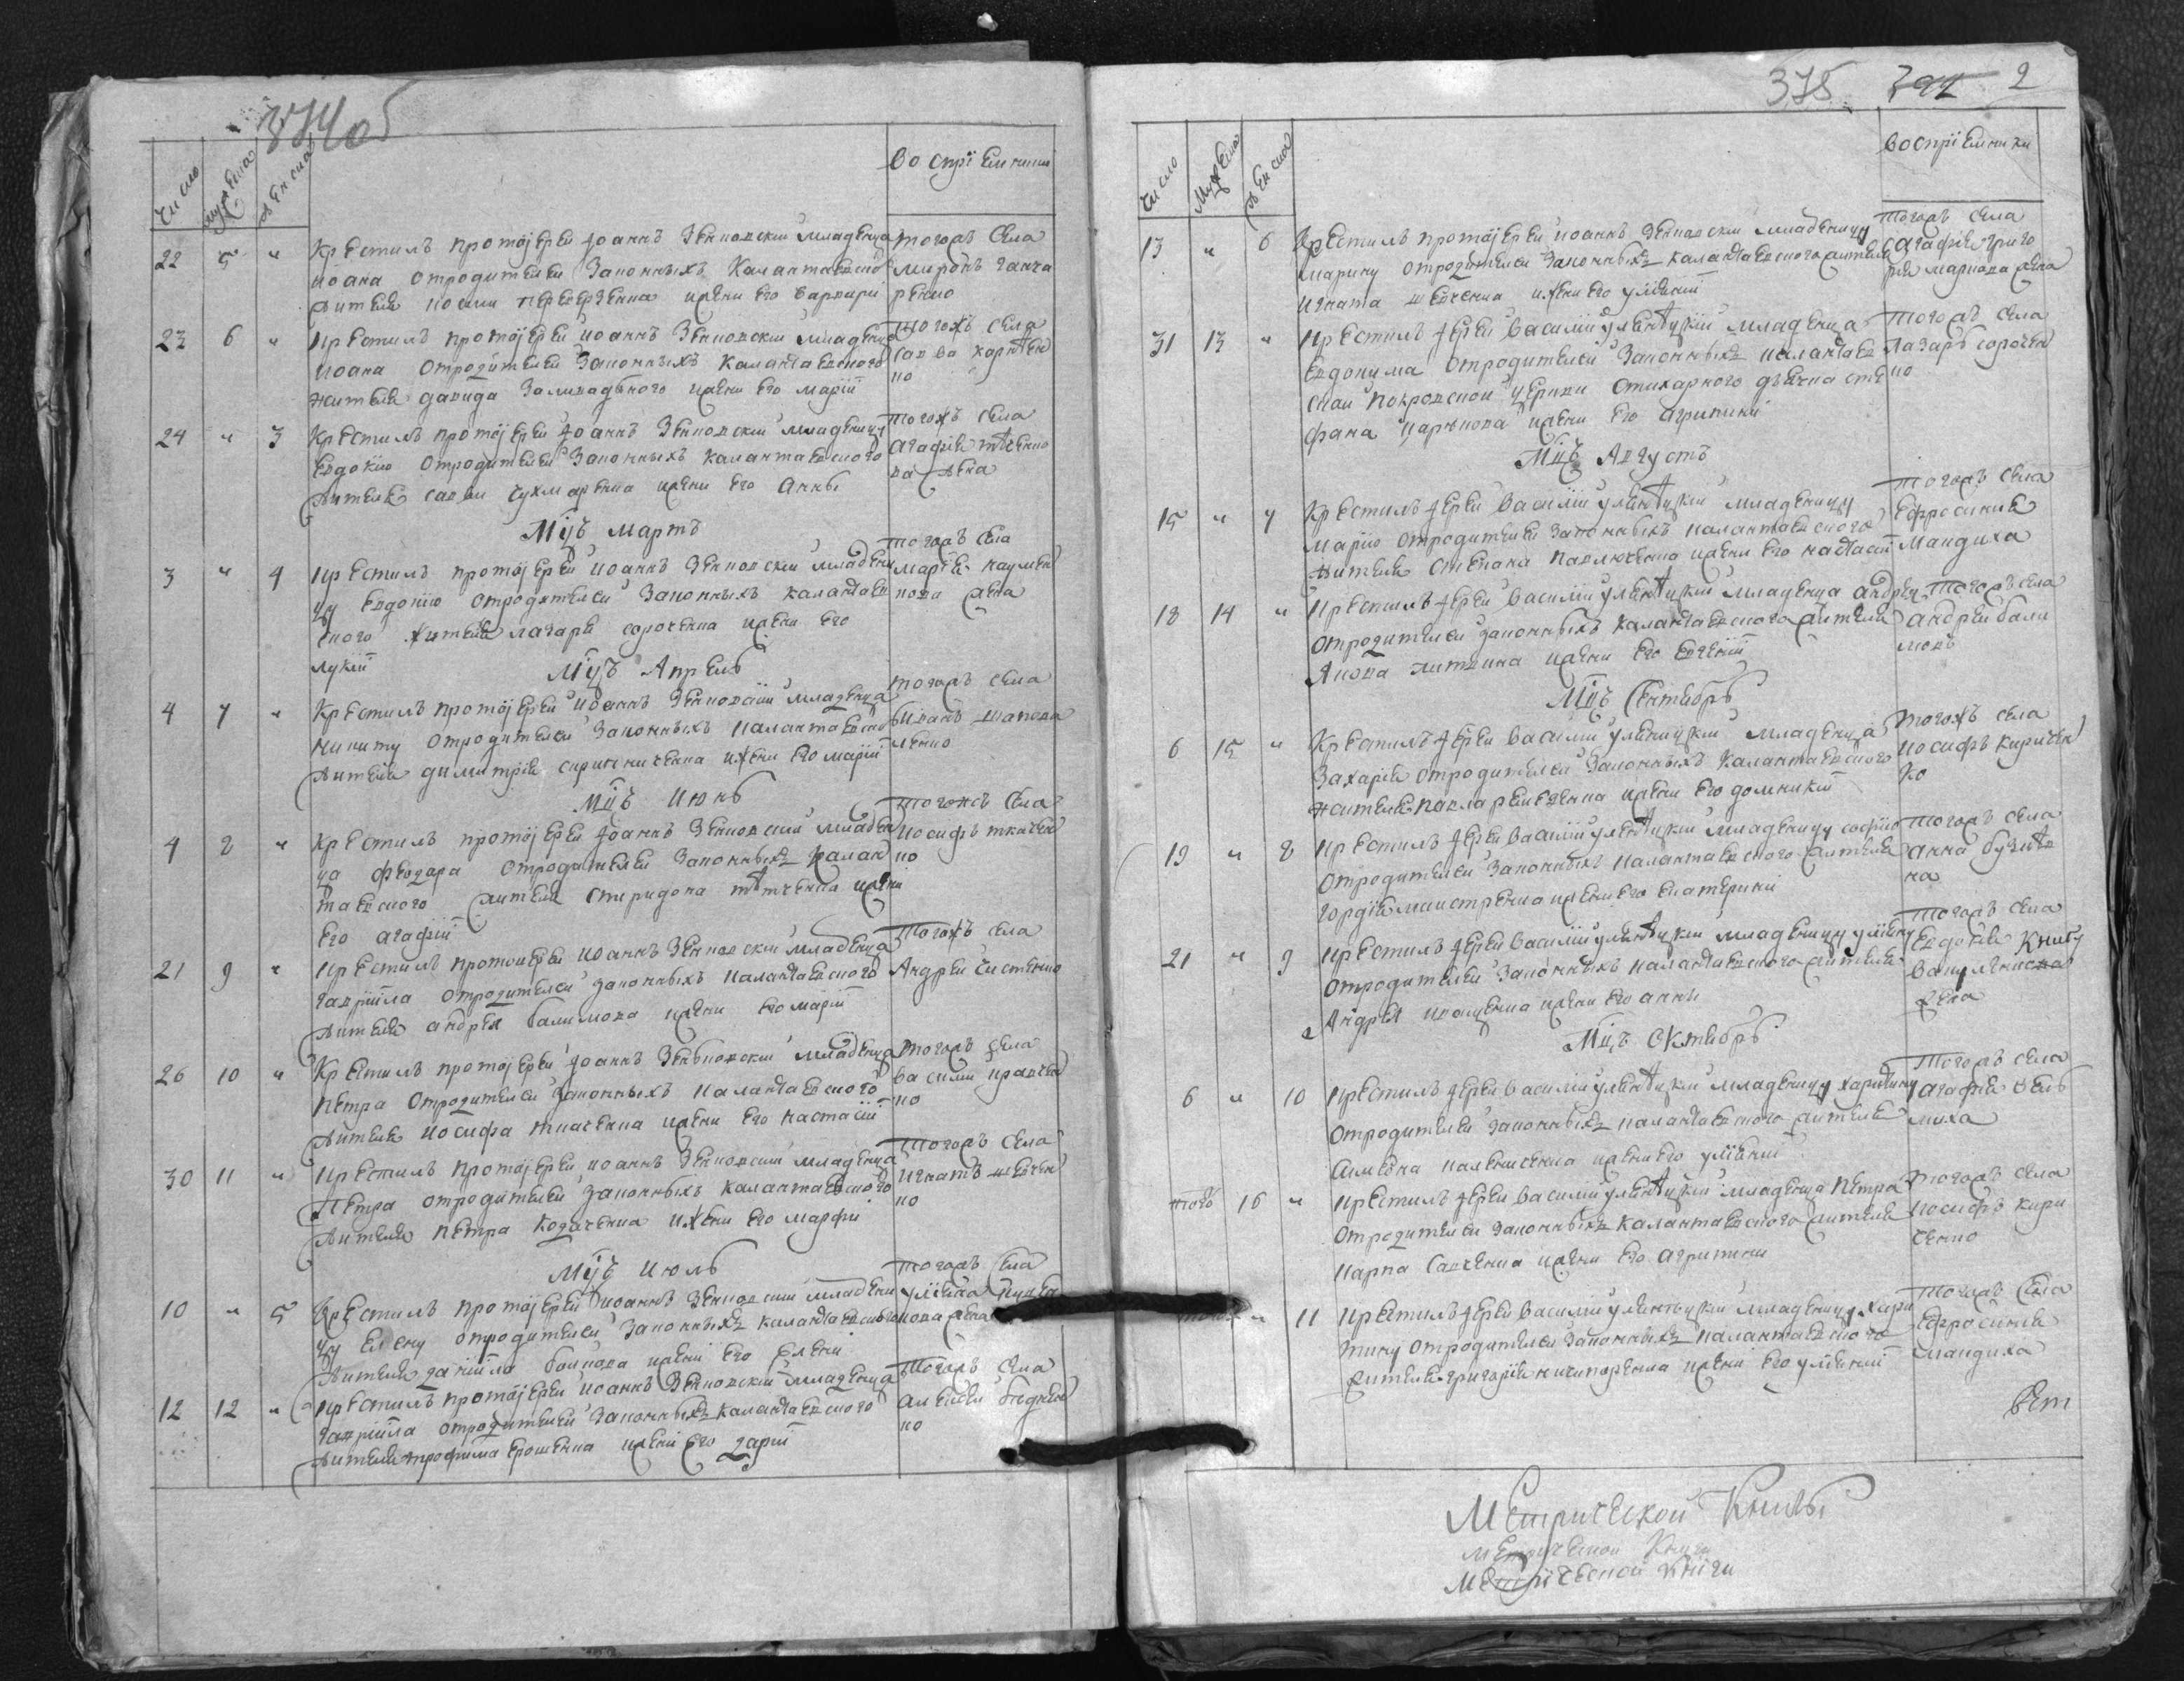 374об
Число
Мужеска
Женска
Воспріемники
22 5 " Крестилъ протоіерей Іоаннъ Зенковскій младенца
Іоана отродителей законныхъ калантаевско
жителя
жены его варвари
тогожъ села
Миронъ ганча
ренко
23 6 " Крестилъ протоіерей Іоаннъ Зенковскій младенца
Іоана отродителей законныхъ калантаевского
жителя давида жены его маріи
тогожъ села
савва харчен
ко
24 " 3 Крестилъ протоіерей Іоаннъ Зенковскій младеницу
евдокию отродителей законныхъ калантаевского
жителя саввы чухмаренка жены его Анны
тогожъ села
агафія
ва жена
Мцъ Мартъ
3 " 4 Крестилъ протоіерей Іоаннъ Зенковскій младени
цу евдокію отродителей законныхъ калантаев
ского жителя лазаря сороченка жены его
лукіи
тогожъ села
маріа наумен
кова жена
Мцъ Апрель
4 7 " Крестилъ протоіерей Іоаннъ Зенковскій младенца
никиту отродителей законныхъ калантаевско
жителя димитрія скрипниченка жены его маріи
тогожъ села
иванъ шапова
ленко
Мцъ Июнь
4 8 " Крестилъ протоіерей Іоаннъ Зенковскій младен
ца феодара отродителей законныхъ калан
таевского жителя спиридона жены
его агафіи
тогожъ села
иосифъ ткачен
ко
21 9 " Крестилъ протоиерей Іоаннъ Зенковскій младенца
гавріила отродителей законныхъ калантаевского
жителя андрея балимова жены его маріи
тогожъ села
Андрей чистенко
26 10 " Крестилъ протоіерей Іоаннъ Зенковскій младенца
петра отродителей законныхъ калантаевского
жителя иосифа ткаченка жены его настасіи
тогожъ села
василій кравчен
ко
30 11 " Крестилъ протоіерей Іоаннъ Зенковскій младенца
петра отродителей законныхъ калантаевского
жителя петра козаченка жены его марфи
тогожъ села
игнатъ шевчен
ко
Мцъ Июль
10 " 5 Крестилъ протоіерей Іоаннъ Зенковскій младени
цу елену отродителей законныхъ калантаевского
жителя даніила бойкова жены его елени
тогожъ села
уліяна
кова жена
12 12 " Крестилъ протоіерей Іоаннъ Зенковскій младенца
гавріила отродителей законныхъ калантаевского
жителя трофима ерошенка жены его дарїи
тогожъ села
алексей беднен
ко
375 2
Число
Мужеска
Женска
воспріемники
13 " 6 Крестилъ протоіерей Іоаннъ Зенковскій младеницу
марину отродителей законныхъ калантаевского жителя
игната шевченка жены его уліянїи
тогожъ села
агафія григо
рія маркова жена
31 13 " Крестилъ іерей василій улентуцкій младенца
евдокима отродителей законныхъ калантаев
ской покровской церкви стихарного дьячка сте
фана царькова жены его агрипини
тогожъ села
лазаръ сорочен
ко
Мцъ Августъ
15 " 7 Крестилъ іерей василій улентуцкій младеницу
марію отродителей законныхъ калантаевского
жителя степана павлюченка жены его настасіи
тогожъ села
ефросинія
мандиха
18 14 " Крестилъ іерей василій улентуцкій младенца андрея
отродителей законныхъ калантаевского жителя
Якова литвина жены его евгеніи
тогожъ села
андрей бали
мовъ
Мцъ Сентябрь
6 15 " Крестилъ іерей василій улентуцкій младенца
захарія отродителей законныхъ калантаевского
жителя павла жены его домникіи
тогожъ села
иосифъ киричен
ко
19 " 8 Крестилъ іерей василій улентуцкій младеницу софію
отродителей законныхъ калантаевского жителя
гордія маистренка жены его екатерини
тогожъ села
анна
ка
21 " 9 Крестилъ іерей василій улентуцкій младеницу уліяну
отродителей законныхъ калантаевского жителя
Андрея иващенка жены его анны
тогожъ села
евдокія Книгу
жена
Мцъ Октябрь
6 " 10 Крестилъ іерей василій улентуцкій младеницу харитину
отродителей законныхъ калантаевского жителя
симеона жены его уліянии
тогожъ села
агафія
миха
тогож 16 " Крестилъ іерей василій улентуцкій младенца петра
отродителей законныхъ калантаевского жителя
карпа савченка жены его агрипини
тогожъ села
иосифъ кири
ченко
" 11 Крестилъ іерей василій улентуцкій младеницу хари
тину отродителей законныхъ калантаевского
жителя григорія никипоренка жены его уліянии
тогожъ села
ефросинія
мандиха
Метрической Книги
метрической Книги
Метрической книги